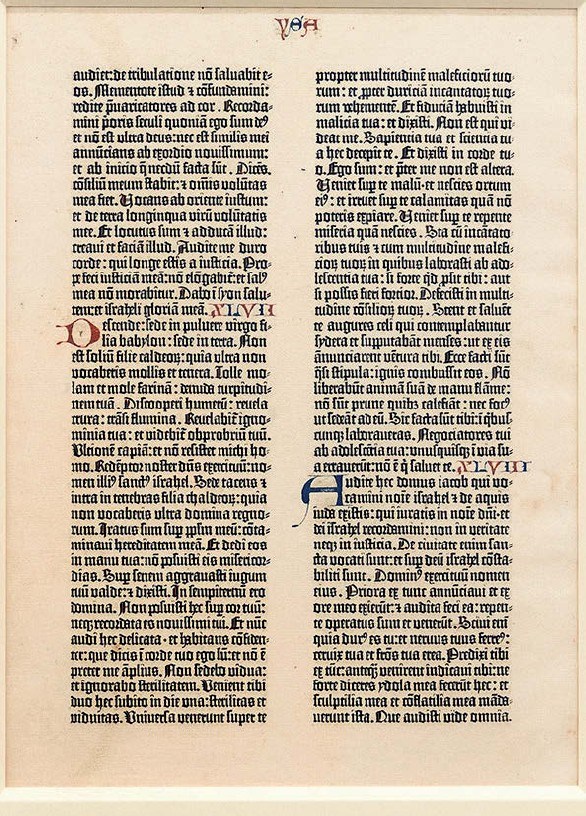 YSA
audiet: de tribulatione nō saluabit e-
os. Mementote istud ⁊ cōfundamini:
redite p̄uaricatores ad cor. Recorda-
mini prioris seculi quoniā ego sum de⁹
et nō est ultra deus: nec est similis mei
annūcians ab exordio nouissimum:
et ab inicio q̄ necdū facta sūt. Dicēs.
cōsiliū meum stabit: ⁊ om̄is volūtas
mea fiet. Vocans ab oriente iustum:
et de terra longinqua virū volūtatis
mee. Et locutus sum ⁊ adducā illud:
creaui et faciā illud. Audite me duro
corde: qui longe estis a iusticia. Pro-
pe feci iusticiā meā: nō elōgabit̄: et sal⁹
mea nō morabitur. Dabo ī syon salu-
tem: et israheli gloriam meā. XLVII
Descende: sede in puluere virgo fi-
lia babylon: sede in terra. Non
est solium filie caldeoꝝ: quia ultra non
vocaberis mollis et tenera. Tolle mo-
lam et mole farinā: denuda turpitudi-
nem tuā. Discooperi humerū: reuela
crura: trāsi flumina. Reuelabit̄ igno-
minia tua: et videbit̄ obprobriū tuū.
Vltionē capiā: et nō resistet michi ho-
mo. Redēptor noster dn̄s exercituū: no-
men illi⁹ sanct⁹ israhel. Sede tacens ⁊
intra in tenebras filia chaldeoꝝ: quia
non vocaberis ultra domina regno-
rum. Iratus sum sup̄ pp̄lm meū: cōta-
minaui hereditatem meā. Et dedi eos
in manu tua: nō posuisti eis misericor-
dias. Sup̄ senem aggrauasti iugum
tuū valde: ⁊ dixisti. In sempiternū ero
domina. Non posuisti hec sup̄ cor tuū:
neqꝫ recordata es nouissimi tui. Et nūc
audi hec delicata · et habitans cōfiden-
ter: que dicis ī corde tuo ego sū: et nō ē
preter me āplius. Non sedebo vidua:
et ignorabo sterilitatem. Venient tibi
duo hec subito in die una: sterilitas et
viduitas. Vniuersa venerunt super te
propter multitudinē maleficioꝝ tuo-
rum: et ꝓpter duriciā incantatoꝝ tuo-
rum vehementē. Et fiduciā habuisti in
malicia tua: et dixisti. Non est qui vi-
deat me. Sapiencia tua et sciencia tu-
a hec decepit te. Et dixisti in corde tu-
o. Ego sum: et p̄ter me non est altera.
Veniet sup̄ te malū · et nescies ortum
ei⁹: et irruet sup̄ te calamitas quā nō
poteris expiare. Veniet sup̄ te repente
miseria quā nescies. Sta cū incanta-
toribus tuis ⁊ cum multitudine malefi-
cioꝝ tuoꝝ in quibus laborasti ab ado-
lescentia tua: si forte qd̄ ꝓsit tibi: aut
si possis fieri forcior. Defecisti in multi-
tudine cōsilioꝝ tuoꝝ. Stent et saluent
te augures celi qui contemplabantur
sydera et supputabant menses: ut ex eis
ānunciarent vētura tibi. Ecce facti sūt
q̄si stipula: ignis combussit eos. Nō
liberabūt animā suā de manu flāme:
non sūt prune quibꝫ calefiāt: nec foc⁹
ut sedeāt ad eū. Sic facta sūt tibi: ī q̄bus-
cunqꝫ laboraueras. Negociatores tui
ab adolescētia tua: unusquisqꝫ ī via su-
a errauerūt: nō ē q̄ saluet te. XLVIII
Audite hec domus iacob qui vo-
camini noīe israhel ⁊ de aquis
iuda existis: qui iuratis in noīe dn̄i · et
dei israhel recordamini: non in veritate
neqꝫ in iusticia. De ciuitate enim san-
cta vocati sunt: et sup̄ deū israhel cōsta-
biliti sunt. Domin⁹ exercituū nomen
eius. Priora ex tunc annūciaui et ex
ore meo exierūt: ⁊ audita feci ea: repen-
te operatus sum et venerūt. Sciui enī
quia dur⁹ es tu: et neruus ferre⁹:
ceruix tua et frōs tua erea. Predixi tibi
ex tūc: anteq̄ȝ venirent indicaui tibi: ne
forte diceres ydola mea fecerūt hec: et
sculptilia mea et cōflatilia mea māda-
uerunt ista. Que audisti vide omnia.